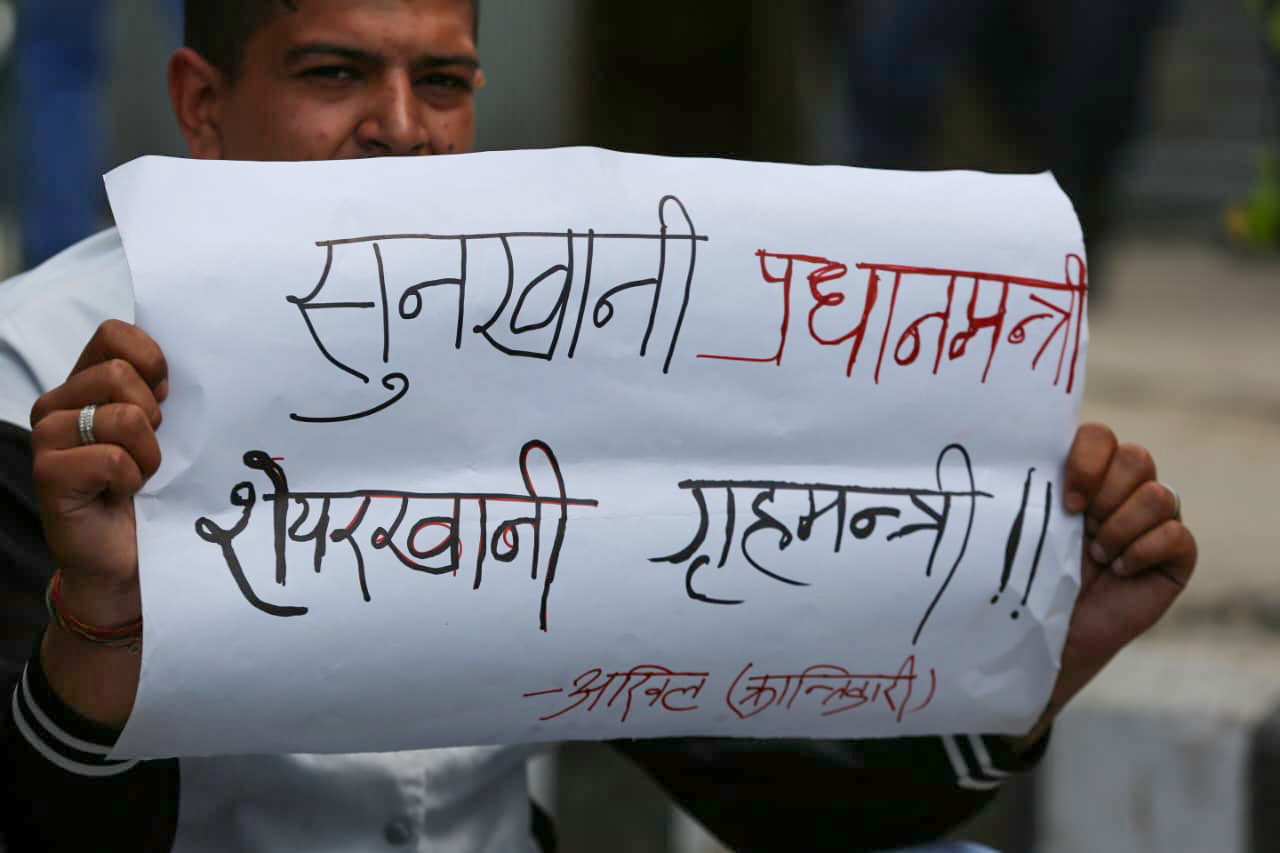 सुनखानी प्रधानमन्त्री
शेयरखानी गृहमन्त्री !!
- अखिल (क्रान्तिकारी)